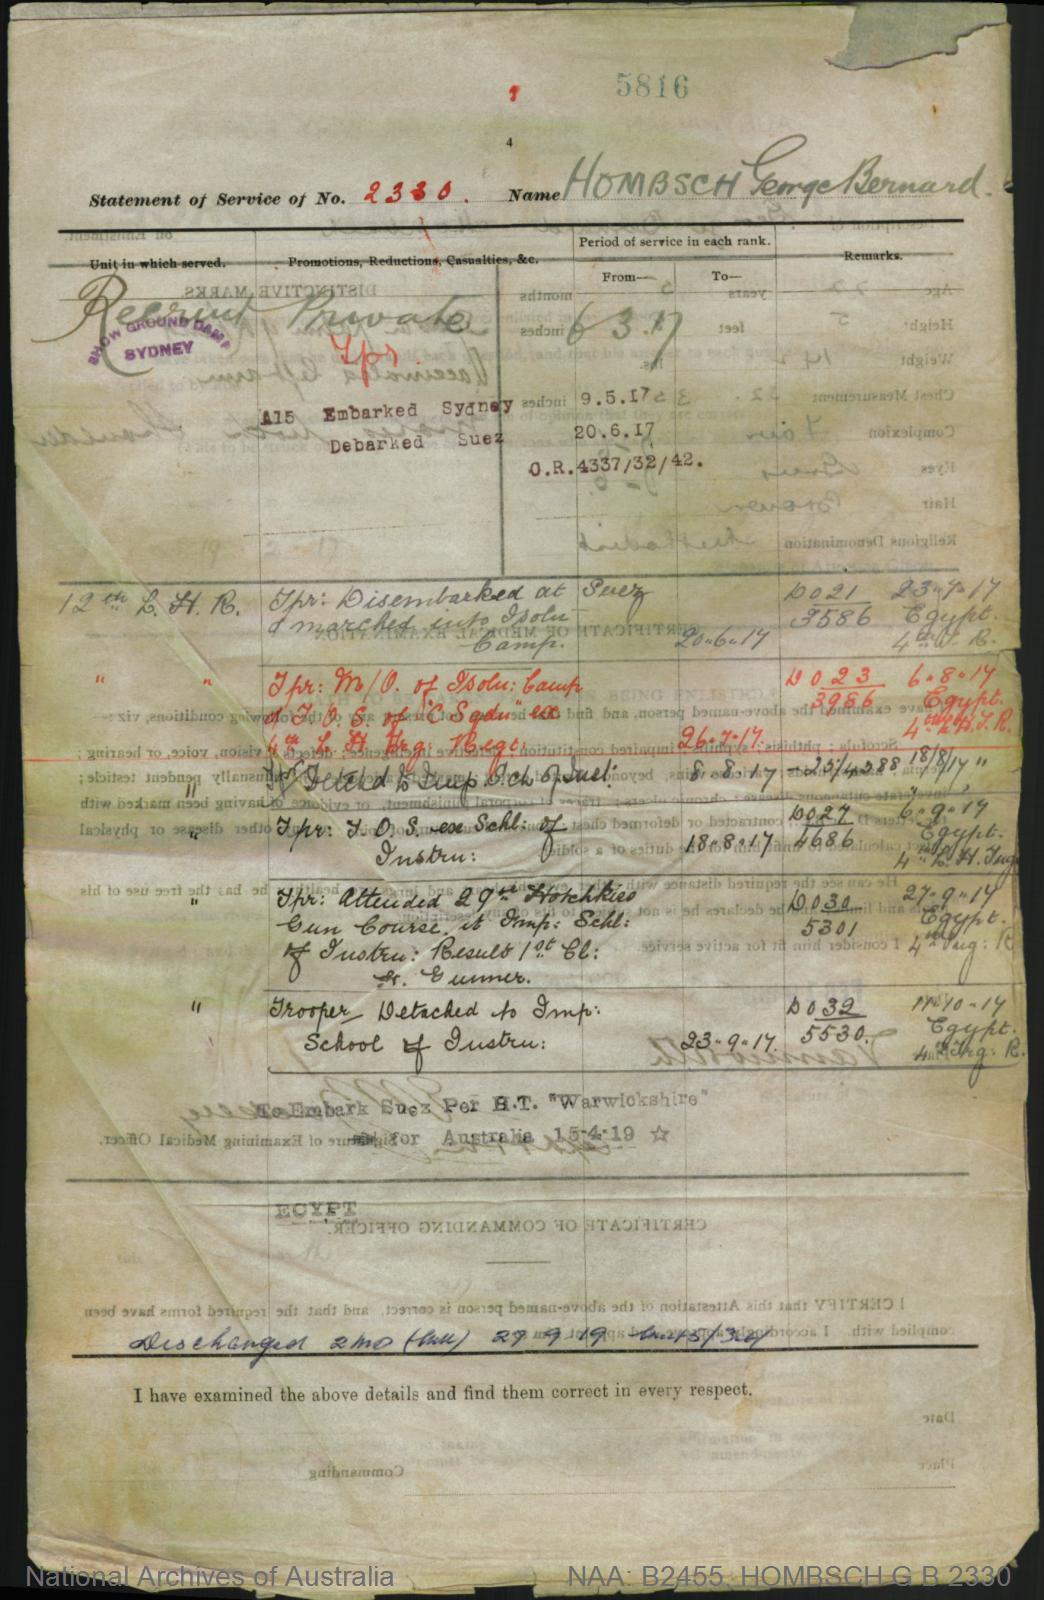 5816
1
4
Statement of Service of No. 2330. Name HOMBSCH George Bernard.
Unit in which served. Promotions, Reductions, Casualties, &c. Period of service in each rank. Remarks.
From— To—
Recruit Private 6 3.17
SHOW GROUND CAMP
SYDNEY
Tpr.
A15 Embarked Sydney 9.5.17
Debarked Suez 20.6.17
C.R.4337/32/42.
12th L. H. R. Tpr: Disembarked at Suez DO21 23-7-17
& marched into Isoln 3586 Egypt.
Camp. 20-6-17 4th
" " Tpr: M/O. of Isoln: Camp DO 23 6-8-17
& T. O. S. of "C Sqdn" ex 3986 Egypt.
4th L H Trg: Regt: 26-7-17 4th L.H.T.R.
" Detchd to Imp Sch of Inst: 8-8-17 25/4388 18/8/17 "
" Tpr: T. O. S. ex Schl: of DO27 6-9-17
Instrn: 18-8-17 4686 Egypt.
4th L. H. Trg
" Tpr: Attended 29th Hotchkiss DO 30 27-9-17
Gun Course, at Imp: Schl: 5301 Egypt.
of Instrn: Result 1st Cl: 4th Trg: R
Gunner.
" Trooper Detached to Imp: DO 32 10-17
School of Instrn: 23-9-17 5530. Egypt.
4th Trg: R.
To Embark Suez Per H.T. "Warwickshire"
for Australia 15-4-19 ☆
EGYPT
Discharged 2MD 27 9 19
I have examined the above details and find them correct in every respect.
National Archives of Australia NAA: B2455, HOMBSCH G B 2330